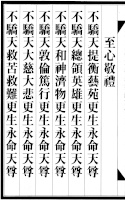 至心敬禮
不驕天提衡藝苑更生永命天尊
不驕天總領英雄更生永命天尊
不驕天和神濟物更生永命天尊
不驕天敦倫篤行更生永命天尊
不驕天大慈大悲更生永命天尊
不驕天救苦救難更生永命天尊